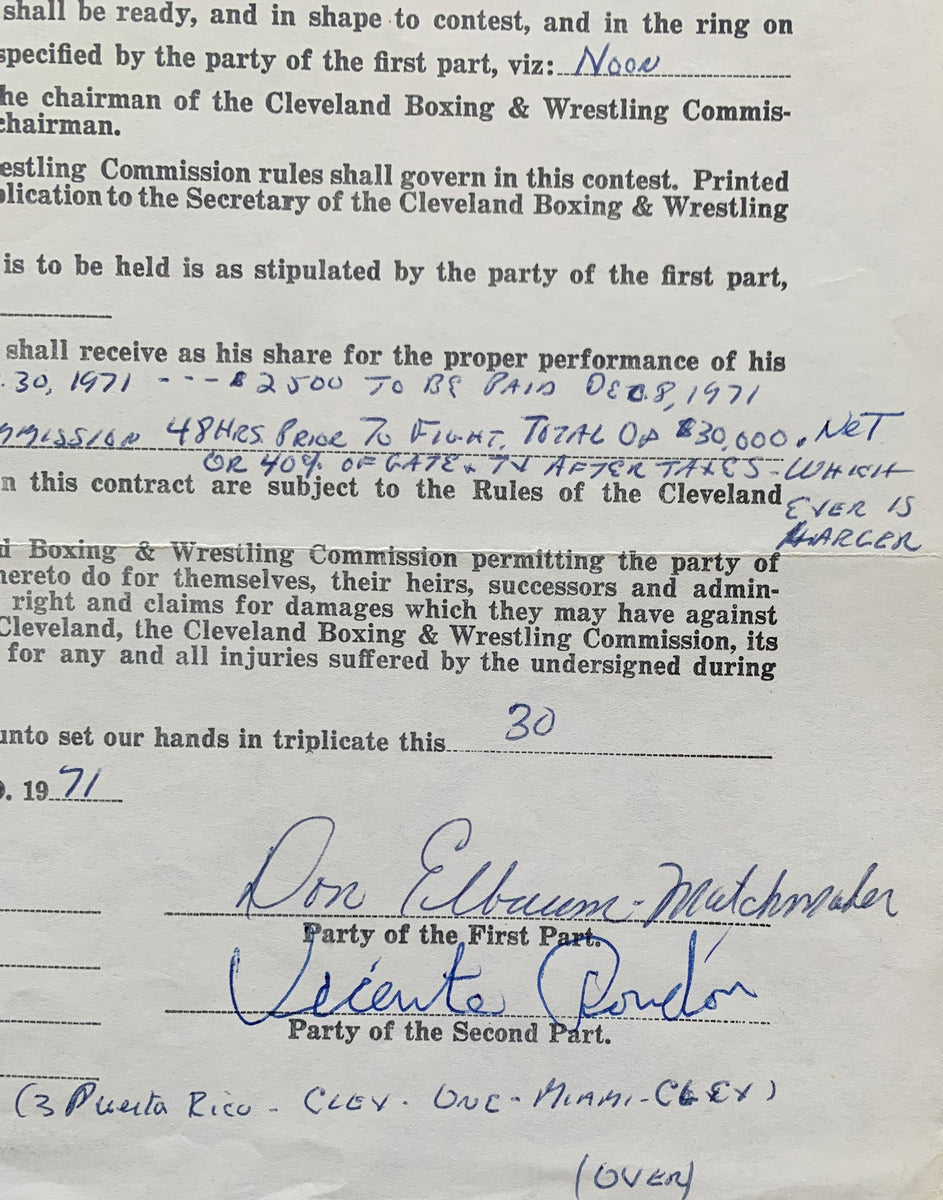 shall be ready, and in shape to contest, and in the ring on
specified by the party of the first part, viz: Noon
he chairman of the Cleveland Boxing & Wrestling Commis-
chairman.
estling Commission rules shall govern in this contest. Printed
plication to the Secretary of the Cleveland Boxing & Wrestling
is to be held is as stipulated by the party of the first part,
shall receive as his share for the proper performance of his
. 30, 1971 - - - $2500 TO BE PAID DEC. 8, 1971
MMISSION 48 HRS. PRIOR TO FIGHT. TOTAL OF $30,000. NET
OR 40% OF GATE + TV AFTER TAXES - WHICH
n this contract are subject to the Rules of the Cleveland
EVER IS
LARGER
d Boxing & Wrestling Commission permitting the party of
hereto do for themselves, their heirs, successors and admin-
right and claims for damages which they may have against
Cleveland, the Cleveland Boxing & Wrestling Commission, its
for any and all injuries suffered by the undersigned during
unto set our hands in triplicate this 30
D. 19 71
Don Elbaum - Matchmaker
Party of the First Part.
Vicente Rondón
Party of the Second Part.
(3 Puerto Rico - CLEV - ONE - MIAMI - CLEV)
(OVER)